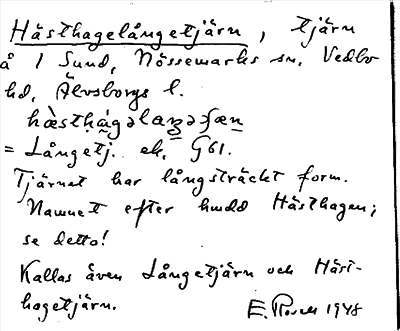 Hästhagelångetjärn, tjärn
å 1 Sund, Nössemarks sn, Vedbo
hd, Älvsborgs l.
= Långetj. ek. G61.
Tjärnet har långsträckt form.
Namnet efter hmdd Hästhagen;
se detto!
Kallas även Långetjärn och Häst-
hagetjärn.
E. Rosell 1948